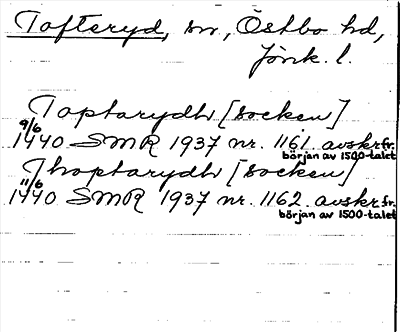 Tofteryd, sn, Östbo hd,
Jönk. l.
Toptarydh [socken]
9/6
1440 SMR 1937 nr. 1161. avskr. fr.
början av 1500-talet
Thoptarydh [socken]
11/6
1440 SMR 1937 nr. 1162. avskr. fr.
början av 1500-talet